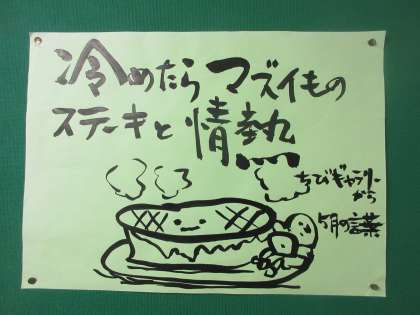 冷めたらマズイもの
ステーキと情熱
ちびギャラリー
から
5月の言葉